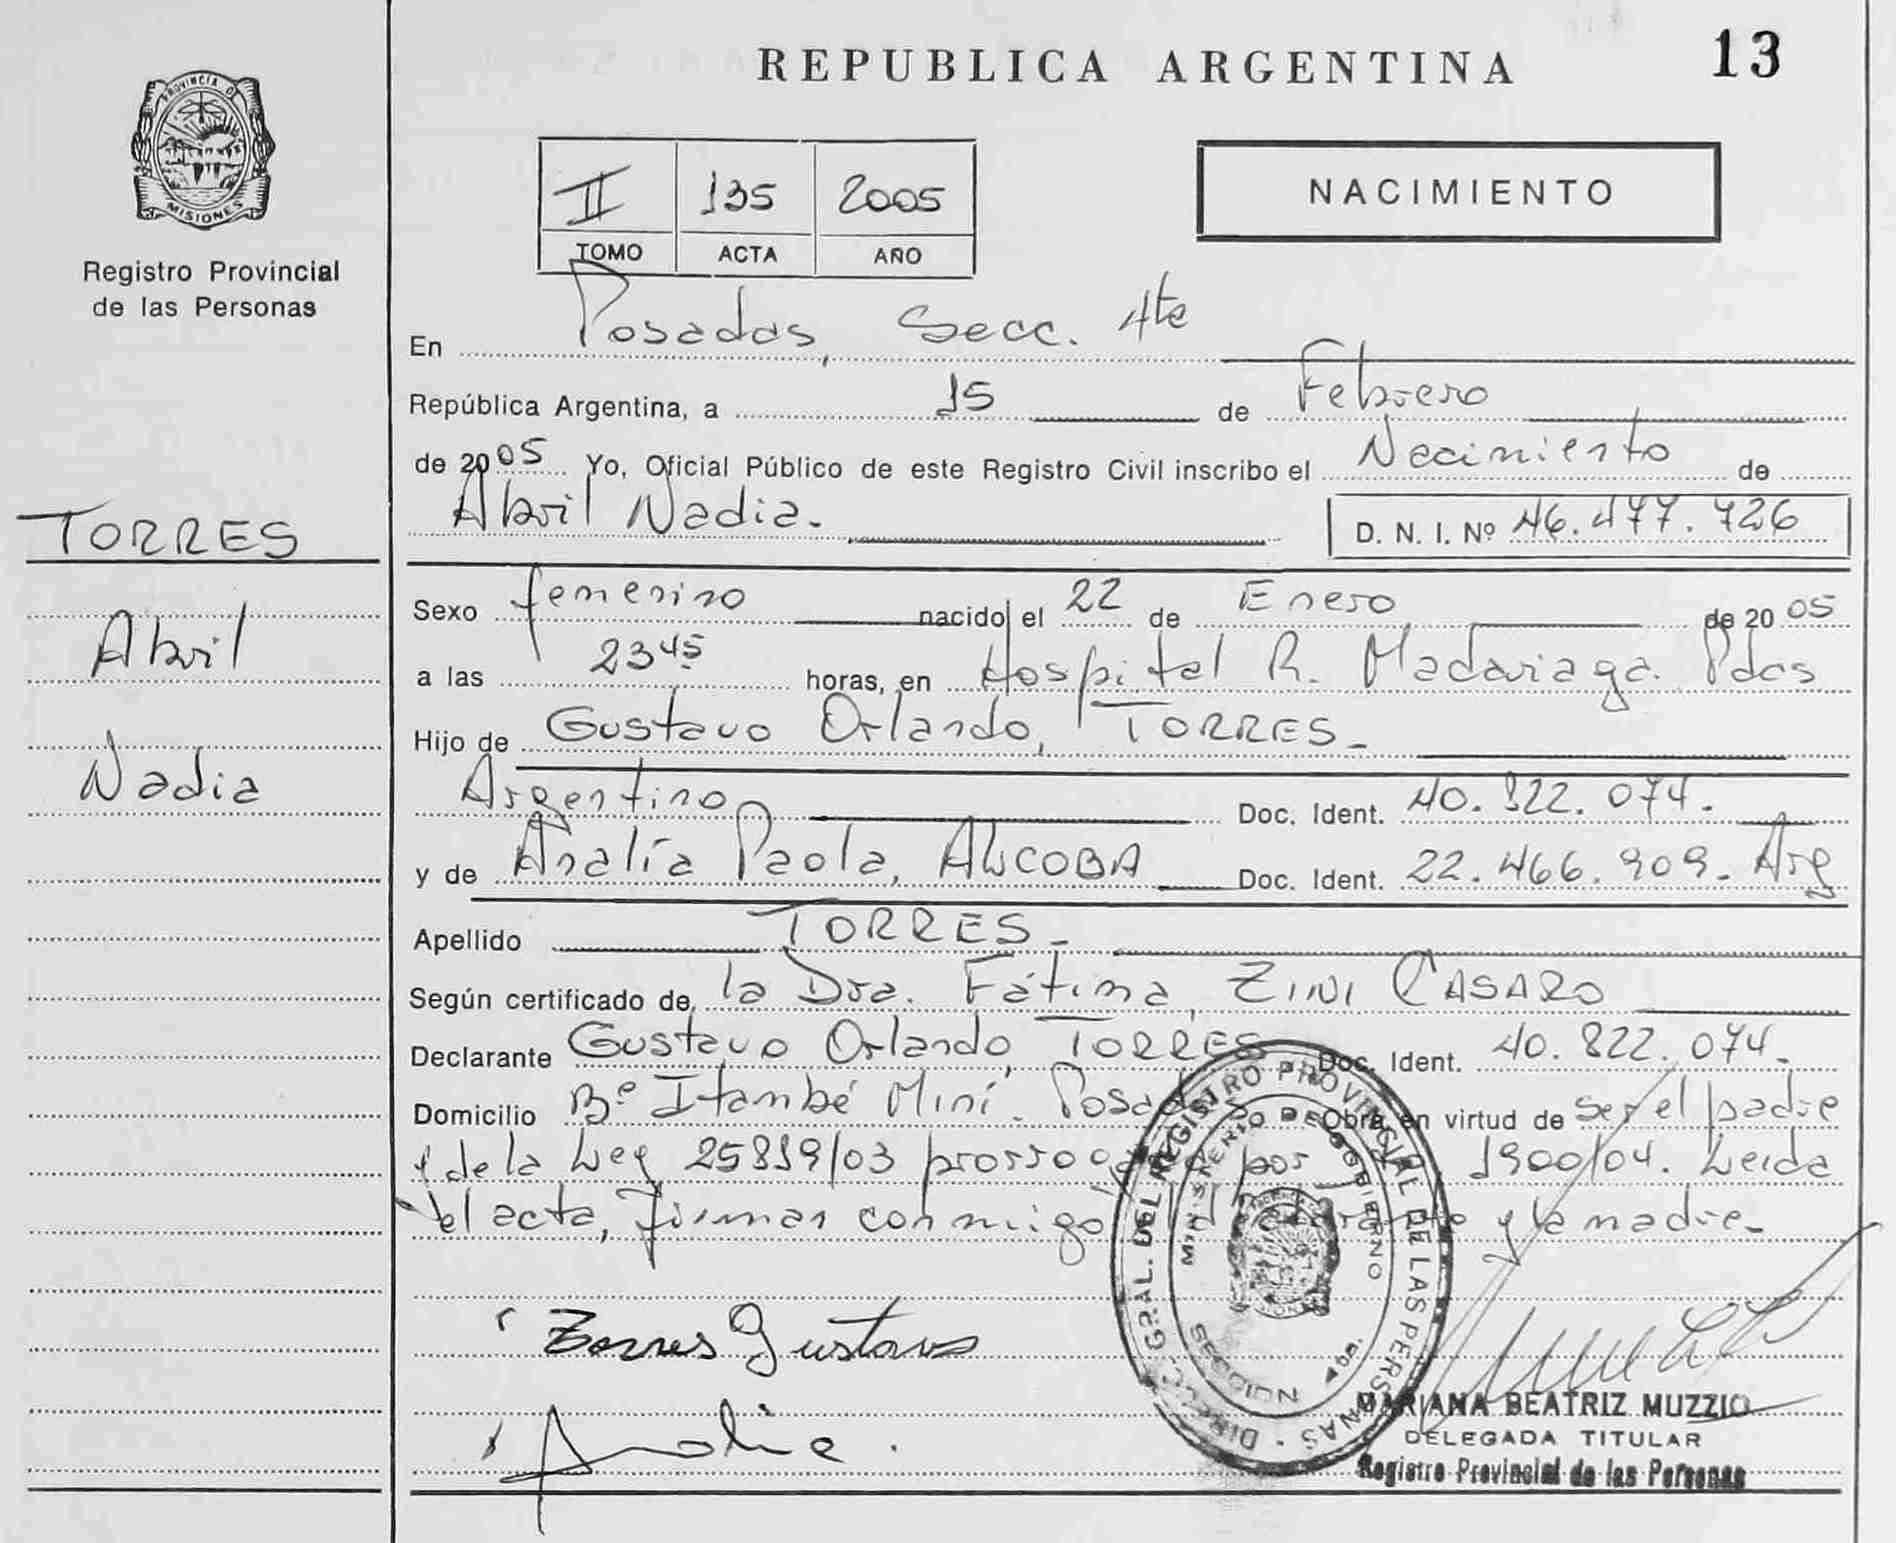 REPUBLICA ARGENTINA
13
PROVINCIA DE
MISIONES
Registro Provincial
de las Personas
II 135 2005
TOMO ACTA AÑO
NACIMIENTO
En Posadas, Secc. 4ta
República Argentina, a 15 de Febrero
de 2005 Yo, Oficial Público de este Registro Civil inscribo el Nacimiento de
Abril Nadia. D. N. I. Nº 46.477.726
TORRES
Abril
Nadia
Sexo femenino nacido el 22 de Enero de 2005
a las 2345 horas, en Hospital R. Madariaga. Pdas
Hijo de Gustavo Orlando, TORRES-
Argentino Doc. Ident. 40.822.074.
y de Analía Paola, ALCOBA Doc. Ident. 22.466.909. Arg
Apellido TORRES-
Según certificado de la Dra. Fátima, ZINI CASARO
Declarante Gustavo Orlando, TORRES Doc. Ident. 40.822.074.
Domicilio Bº Itambé Miní. Posadas Obra en virtud de ser el padre
y de la Ley 25819/03 por 1900/04. Leída
el acta, firman conmigo y la madre-
Torres Gustavo
Analia.
DIRECC. GRAL. DEL REGISTRO PROVINCIAL DE LAS PERSONAS
MINISTERIO DE GOBIERNO
SECCION
MARIANA BEATRIZ MUZZIO
DELEGADA TITULAR
Registro Provincial de las Personas